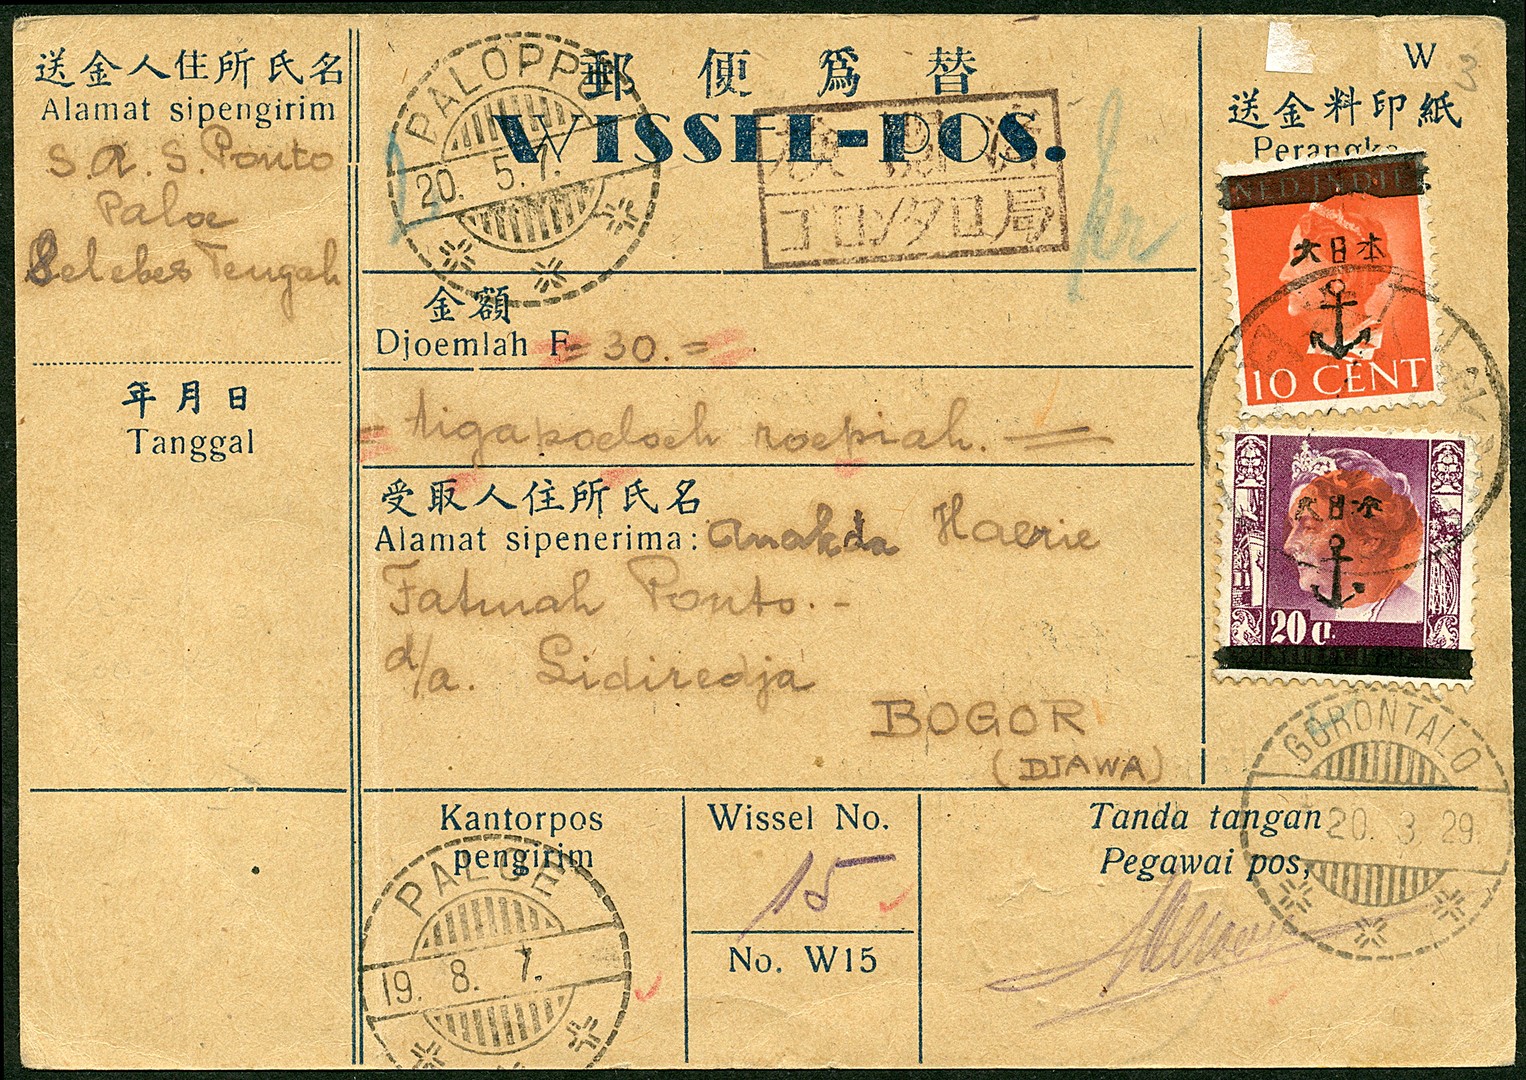 送金人住所氏名
Alamat sipengirim
S. A. S. Ponto
Paloe
Selebes Tengah
年月日
Tanggal
郵便爲替
WISSEL-POS.
PALOPPO
20. 5. 7.
検閲済
ゴロンタロ局
金額
Djoemlah F. = 30. =
= tigapoeloeh roepiah. =
受取人住所氏名
Alamat sipenerima: Anakda Haerie
Fatmah Ponto. -
d/a. Sidiredja
BOGOR
(DJAWA)
W
3
送金料印紙
Perangko
NED. INDIE
大日本
10 CENT
大日本
20 Ct.
GORONTALO
20. 3. 29.
Kantorpos
pengirim
PALOE
19. 8. 7.
Wissel No.
15
No. W15
Tanda tangan
Pegawai pos,